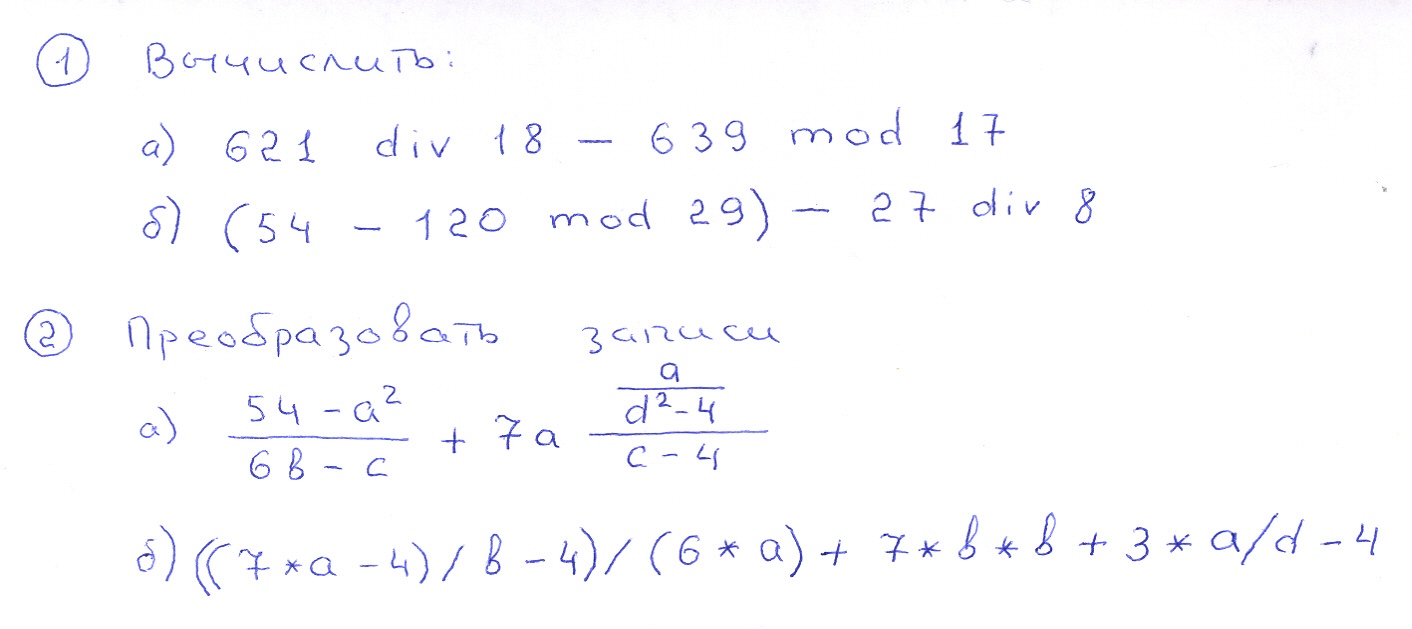 ① Вычислить:
а) 621 div 18 – 639 mod 17
б) (54 – 120 mod 29) – 27 div 8
② Преобразовать записи
а) \frac{54 - a^2}{6b - c} + 7a \frac{\frac{a}{d^2 - 4}}{c - 4}
б) ((7*a – 4) / b – 4) / (6*a) + 7*b*b + 3*a/d – 4